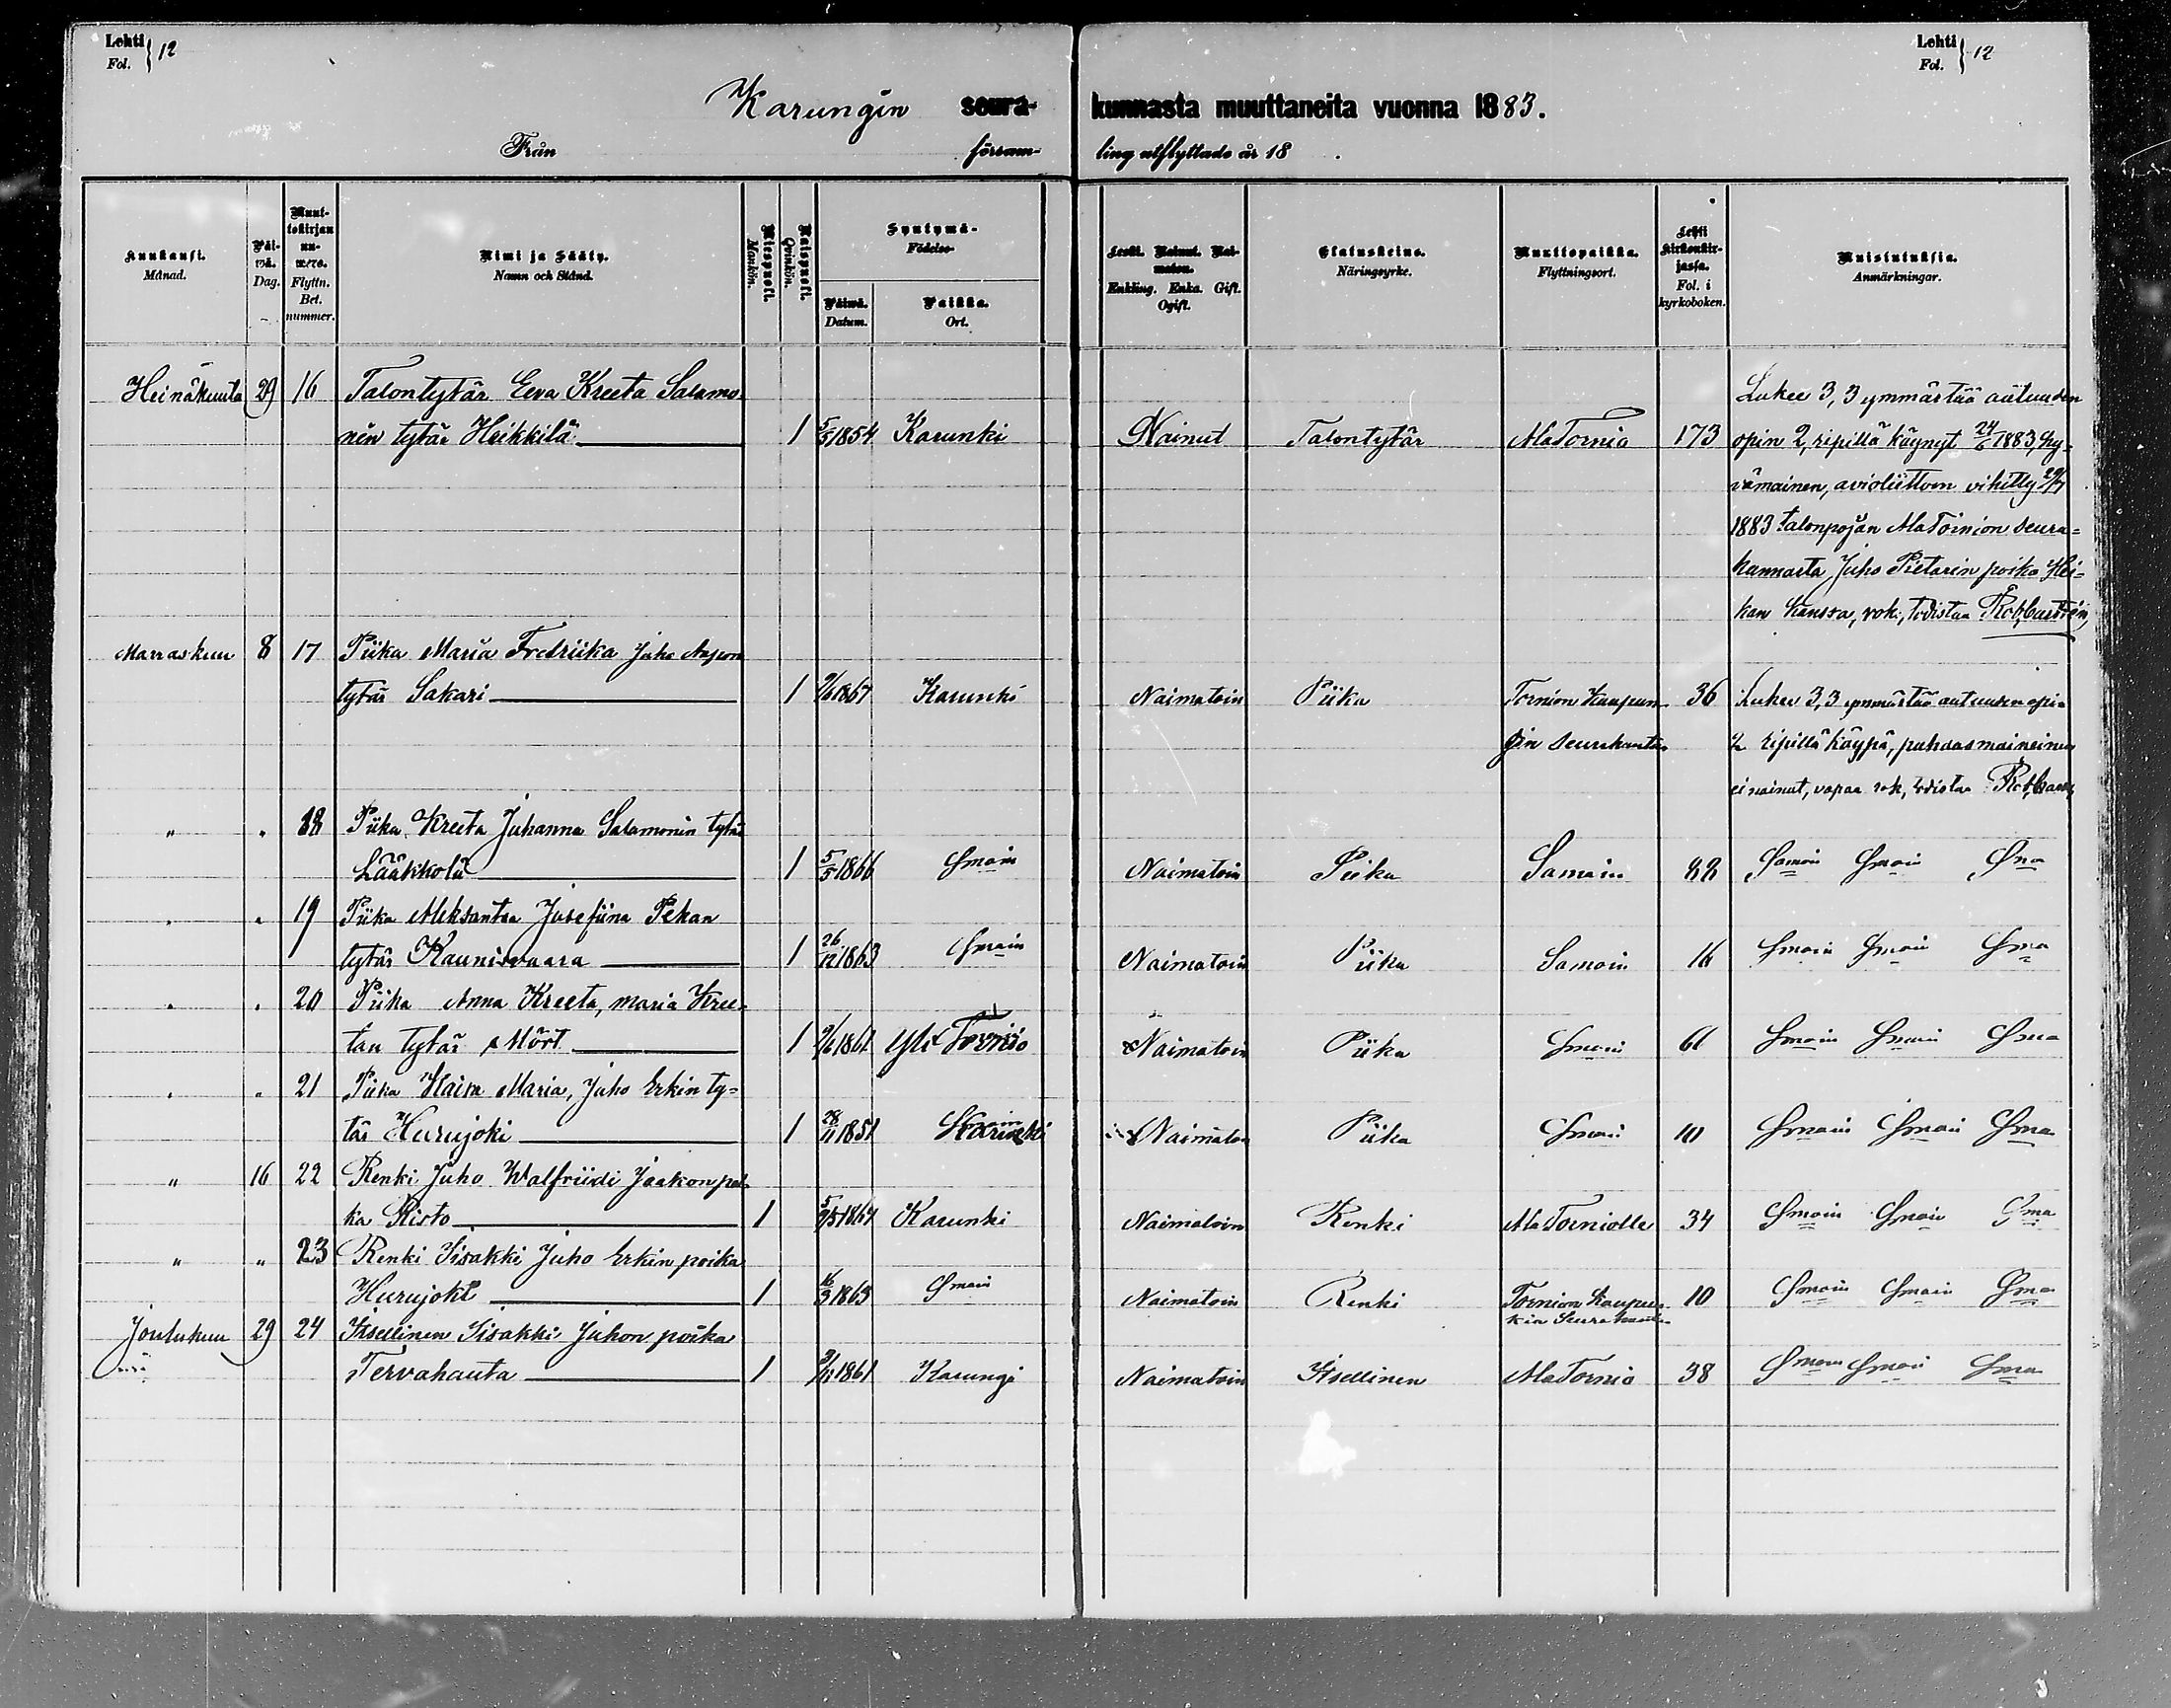 Lehti Fol. } 12
Lehti Fol. } 12
Karungin seura- kunnasta muuttaneita vuonna 1883.
Från försam- ling utflyttade år 18 .
Kuukausi. Månad.
Päi- vä. Dag.
Muut- tokirjan nu- mero. Flyttn. Bet. nummer.
Nimi ja Sääty. Namn och Stånd.
Miespuoli. Mankön.
Naispuoli. Qvinkön.
Syntymä- Födelse-
Päivä. Datum.
Paikka. Ort.
Leski. Nainut. Nai- maton. Enkling. Enka. Gift. Ogift.
Elatuskeino. Näringsyrke.
Muuttopaikka. Flyttningsort.
Lehti kirkonkir- jassa. Fol. i kyrkoboken.
Muistutuksia. Anmärkningar.
Heinäkuuta 29 16 Talontytär Eeva Kreeta Salamo- Lukee 3, 3 ymmärtää autuuden
nin tytär Heikkilä 1 5/5 1854 Karunki Nainut Talontytär AlaTornio 173 opin 2, ripillä käynyt 24/6 1883, hy-
vämainen, avioliittoon vihitty 29/7
1883 talonpojan AlaTornion seura-
kunnasta Juho Pietarin poika Hei-
kan kanssa, rok., todistaa
Marraskuu 8 17 Piika Maria Fredriika Juho Aapon
tytär Sakari 1 1867 Karunki Naimatoin Piika Tornion Kaupun- 36 Lukee 3,3 ymmärtää autuuden opin
gin seurakuntaan 2 ripillä käypä, puhdasmaineinen
ei nainut, vapaa rok, todistaa
" " 18 Piika Kreeta Johanna Salamonin tytär
Lääkkolä 1 5/5 1866 Samoin Naimatoin Piika Samoin 88 Samoin Samoin Sma
" " 19 Piika Aleksantra Josefiina Pekan
tytär Kaunisvaara 1 26/12 1863 Samoin Naimatoin Piika Samoin 16 Smoin Smoin Sma
" " 20 Piika Anna Kreeta, maria Kree-
tan tytär Mört 1 1861 Yli Tornio Naimatoin Piika Smoin 61 Smoin Smoin Sma
" " 21 Piika Kaisa Maria, Juho Erkin ty-
tär Hurujoki 1 28/11 1851 Karunki Naimatoin Piika Smoin 10 Smoin Smoin Sma
" 16 22 Renki Juho Walfriidi Jaakon poi-
ka Risto 1 1864 Karunki Naimatoin Renki AlaTorniolle 34 Smoin Smoin Sma
" " 23 Renki Iisakki Juho Erkin poika
Hurujoki 1 16/3 1863 Smoin Naimatoin Renki Tornion Kaupun- 10 Smoin Smoin Sma
kin Seurakunta
Joulukuu 29 24 Itsellinen Iisakki Juhon poika
Tervahauta 1 1861 Karungi Naimatoin Itsellinen AlaTornio 38 Smoin Smoin Sma